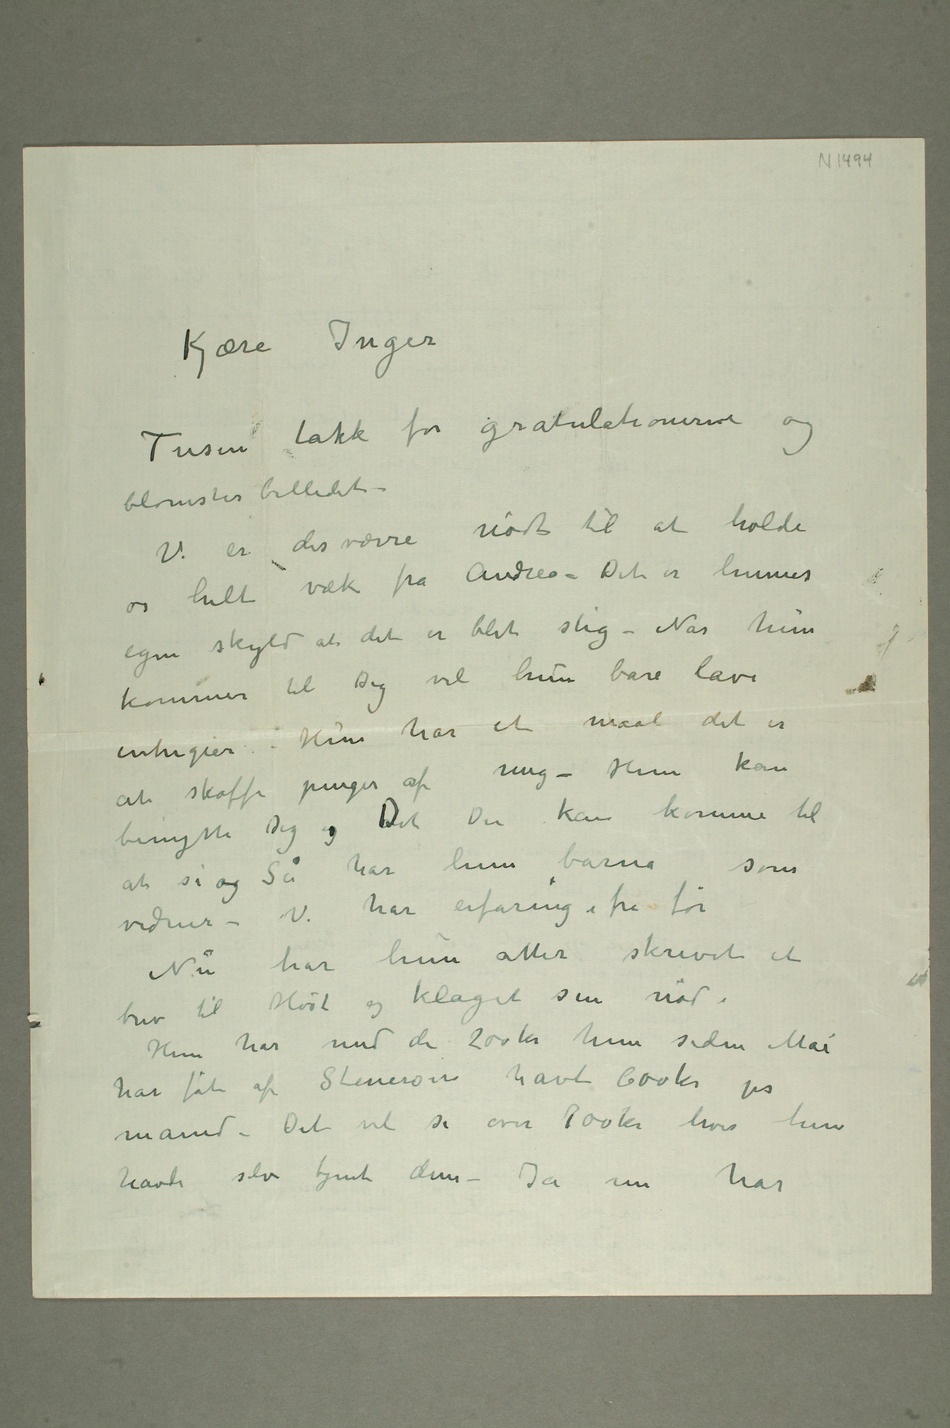 N 1494
Kjære Inger
Tusen takk for gratulationerne og
blomsterbilledet –
Vi er desværre nødt til at holde
os helt væk fra Andrea – Det er hennes
egen skyld at det er blet slig – Når hun
kommer til Dig vil hun bare lave
intriger – Hun har et maal det er
at skaffe penger af mig – Hun kan
benytte Dig og Det Du kan komme til
at si og Så har hun barna som
vidner – Vi har erfaring i fra før
Nu har hun atter skrevet et
brev til Høst og klaget sin nød.
Hun har med de 200 kr hun siden Mai
har fåt af Stenersen havt 600 kr pr
maaned – Det vil si over 800 kr hvis hun
havde selv tjent dem – Ja nu har